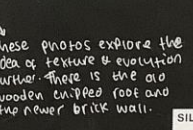 hese photos explore the
dea of texture & evolution
urther. There is the old
wooden chipped root and
the newer brick wall.
SIL